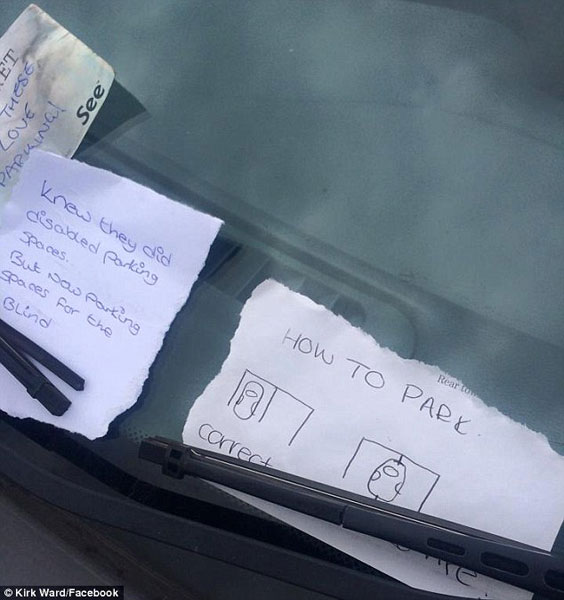 THESE
LOVE
PARKING!
See
Knew they did
disabled parking
spaces.
But now parking
spaces for the
Blind
HOW TO PARK.
correct
© Kirk Ward/Facebook